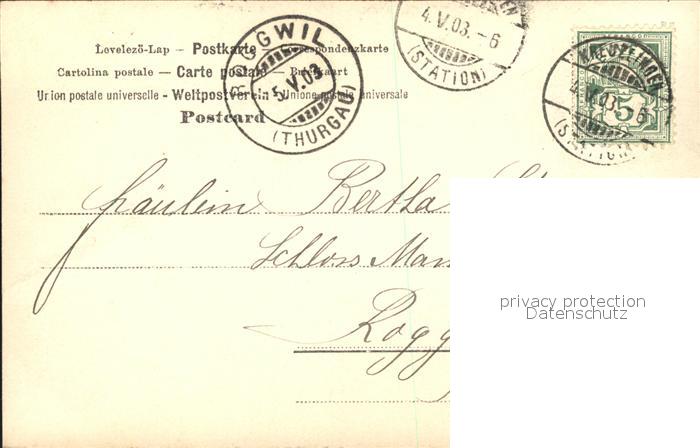 Levelező-Lap – Postkarte – Correspondenzkarte
Cartolina postale – Carte postale – Briefkaart
Union postale universelle - Weltpostverein - Unione postale universale
Postcard
ROGGWIL
5.V.03
(THURGAU)
4.V.03.–6
(STATION)
KREUZLINGEN
4.V.03.–6
(STATION)
5
Fräulein Bertha
Schloss Mam
Rogg
privacy protection
Datenschutz